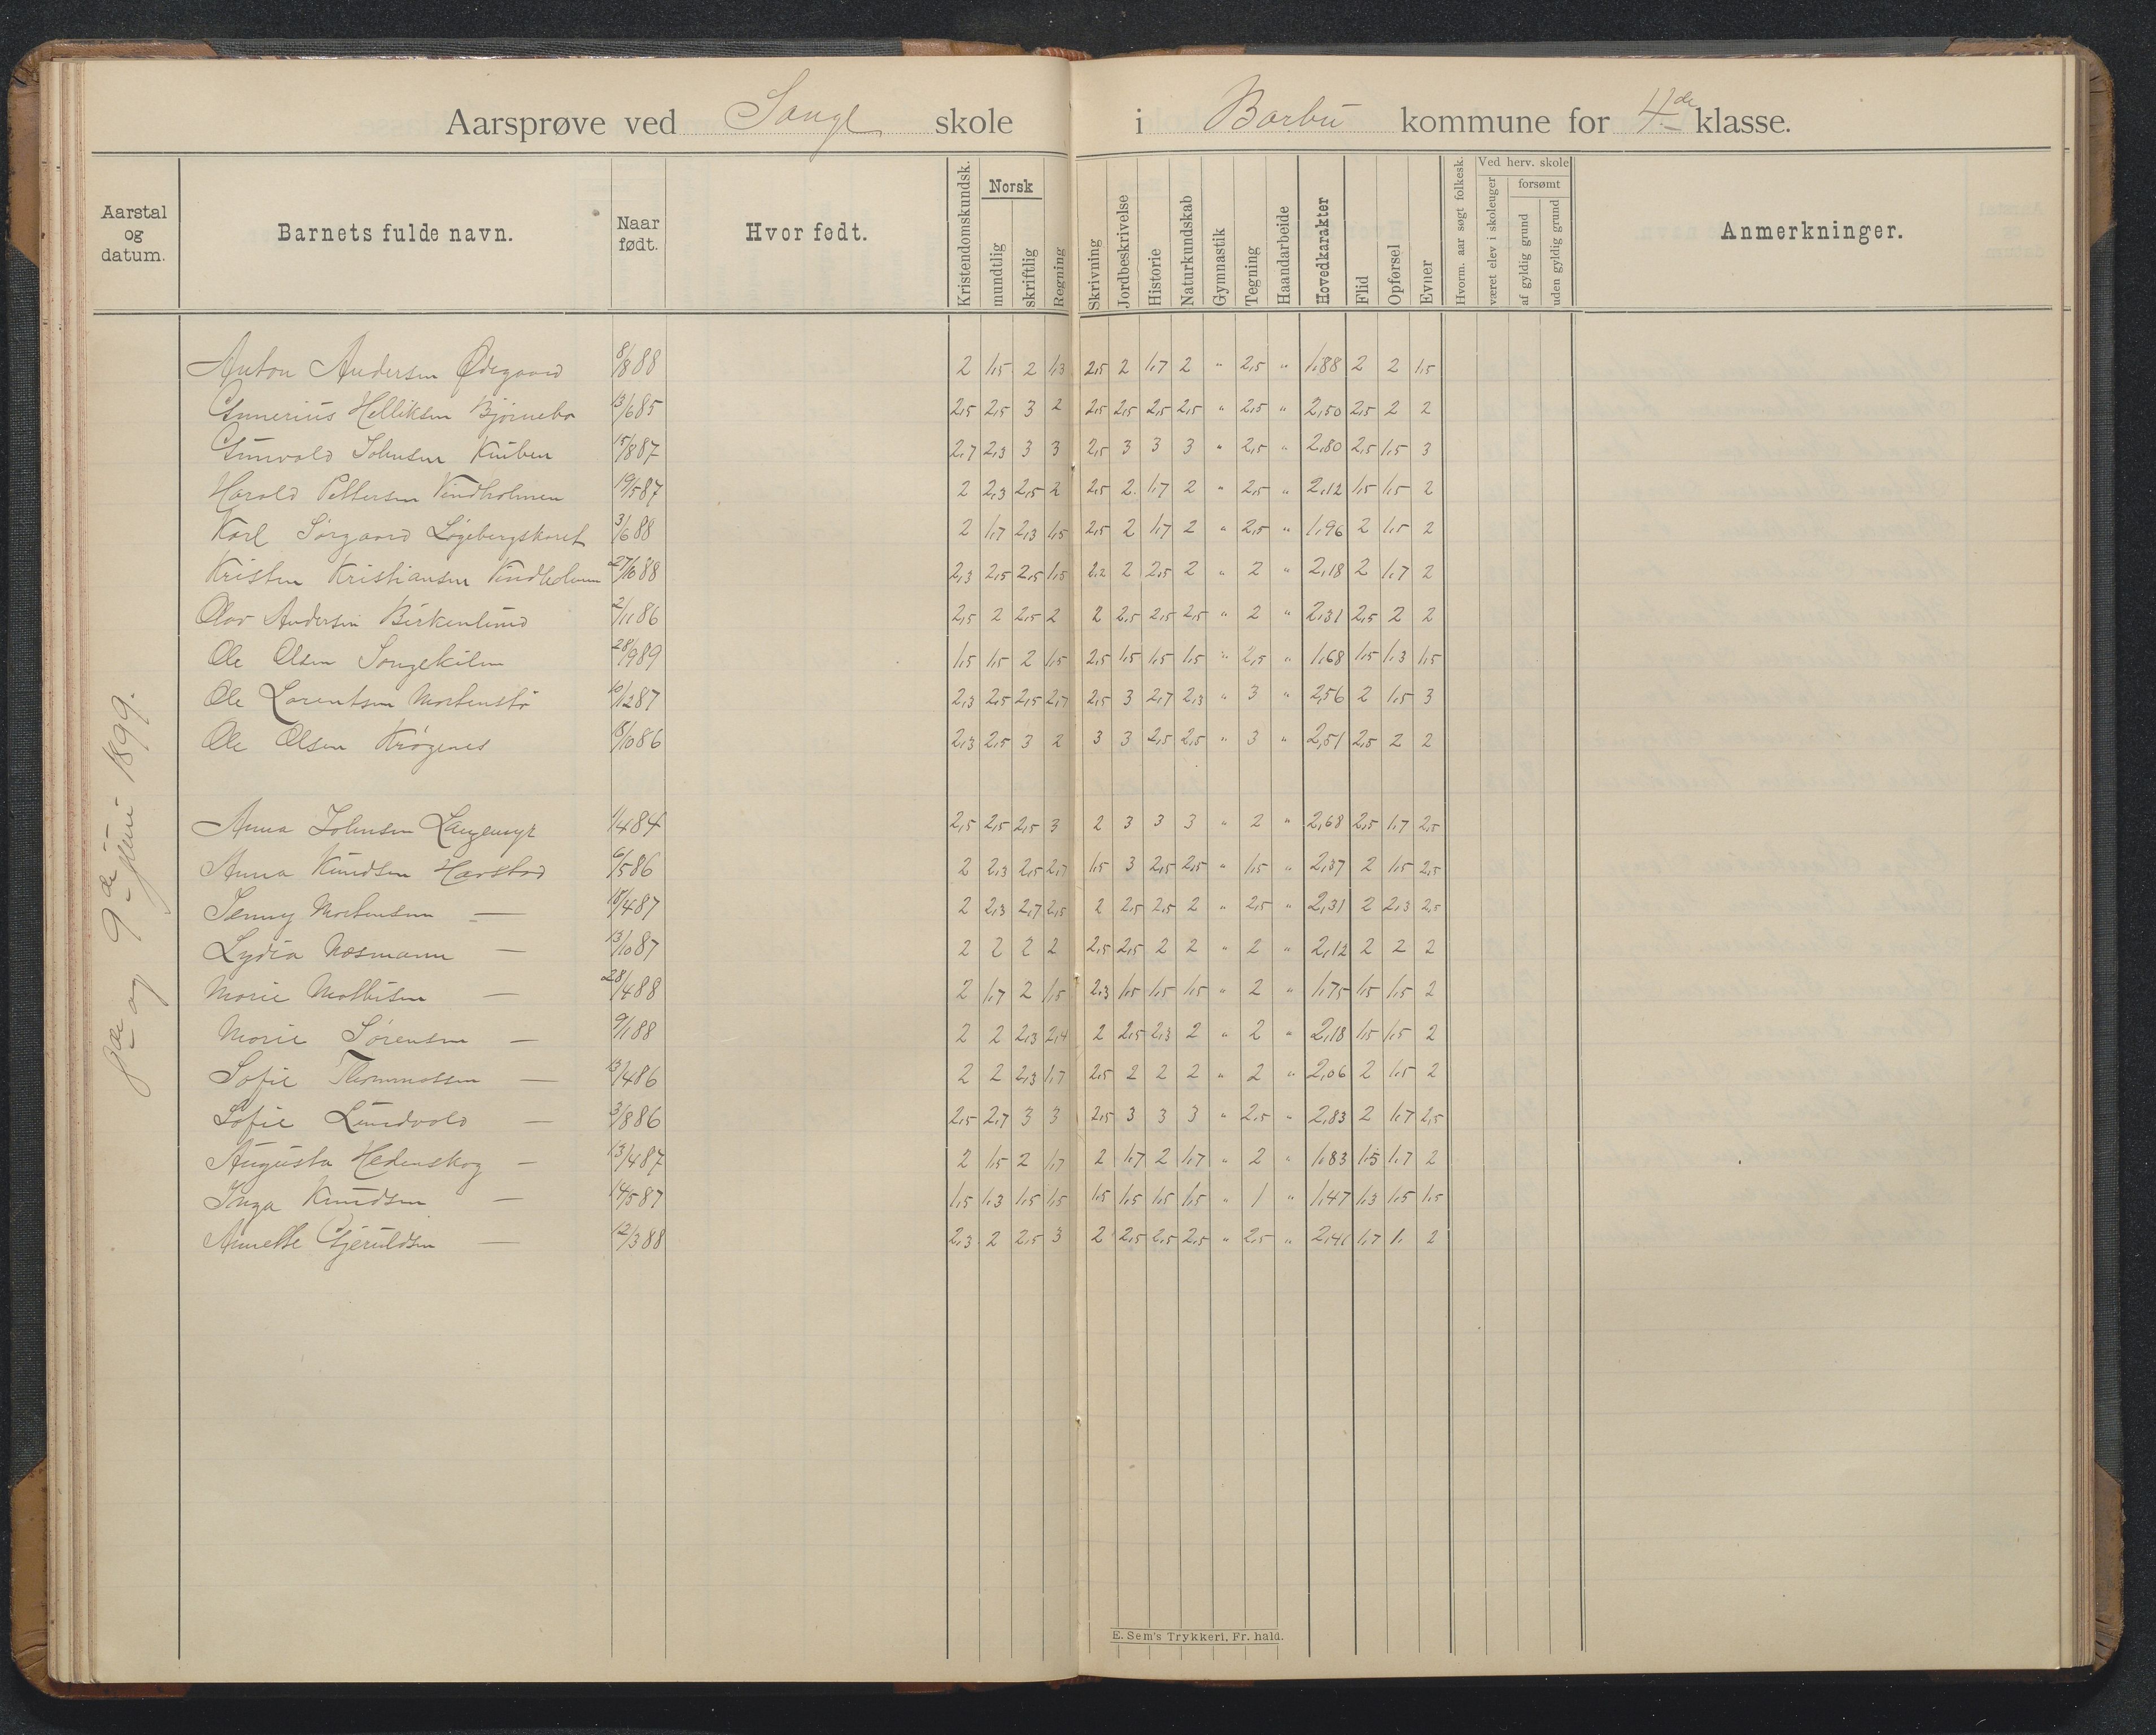 Aarsprøve ved Songe skole i Barbu kommune for 4de klasse.
Aarstal og datum.
Barnets fulde navn.
Naar født.
Hvor født.
Kristendomskundsk.
Norsk
mundtlig
skriftlig
Regning
Skrivning
Jordbeskrivelse
Historie
Naturkundskab
Gymnastik
Tegning
Haandarbeide
Hovedkarakter
Flid
Opførsel
Evner
Hvorm. aar søgt folkesk.
Ved herv. skole
været elev i skoleuger
forsømt
af gyldig grund
uden gyldig grund
Anmerkninger.
8de og 9de juni 1899.
Anton Andersen Ødegaard 8/8 88 2 1,5 2 1,3 2,5 2 1,7 2 " 2,5 " 1,88 2 2 1,5
Gunerius Helliksen Bjørnebo 13/6 85 2,5 2,5 3 2 2,5 2,5 2,5 2,5 " 2,5 " 2,50 2,5 2 2
Gunvald Johnsen Kniben 15/8 87 2,7 2,3 3 3 2,5 3 3 3 " 2,5 " 2,80 2,5 1,5 3
Harald Pettersen Vindholmen 19/5 87 2 2,3 2,5 2 2,5 2 1,7 2 " 2,5 " 2,12 1,5 1,5 2
Karl Sørgaard 3/6 88 2 1,7 2,3 1,5 2,5 2 1,7 2 " 2,5 " 1,96 2 1,5 2
Kristen Kristiansen Vindholmen 27/10 88 2,3 2,5 2,5 1,5 2,2 2 2,5 2 " 2 " 2,18 2 1,7 2
Olav Andersen Birkenlund 2/11 86 2,5 2 2,5 2 2 2,5 2,5 2,5 " 2 " 2,31 2,5 2 2
Ole Olsen Songekilen 28/9 89 1,5 1,5 2 1,5 2,5 1,5 1,5 1,5 " 2,5 " 1,68 1,5 1,3 1,5
Ole Lorentsen Mortenstø 10/12 87 2,3 2,5 2,5 2,7 2,5 3 2,7 2,3 " 3 " 2,56 2 1,5 3
Ole Olsen Krøgenes 18/10 86 2,3 2,5 3 2 3 3 2,5 2,5 " 3 " 2,51 2,5 2 2
Anna Johnsen Langemyr 1/4 84 2,5 2,5 2,5 3 2 3 3 3 " 2 " 2,68 2,5 1,7 2,5
Anna Knudsen Harstad 6/5 86 2 2,3 2,5 2,7 1,5 3 2,5 2,5 " 1,5 " 2,37 2 1,5 2,5
Jenny Mortensen — 15/4 87 2 2,3 2,7 2,5 2 2,5 2,5 2 " 2,5 " 2,31 2 2,3 2,5
Lydia Næsmann — 13/10 87 2 2 2 2 2,5 2,5 2 2 " 2 " 2,12 2 2 2
Marie Mathisen — 28/4 88 2 1,7 2 1,5 2,3 1,5 1,5 1,5 " 2 " 1,75 1,5 1,5 2
Marie Sørensen — 9/1 88 2 2 2,3 2,4 2 2,5 2,3 2 " 2 " 2,18 1,5 1,5 2
Sofie Thommassen — 13/4 86 2 2 2,3 1,7 2,5 2 2 2 " 2 " 2,06 2 1,5 2
Sofie Lundvald — 3/8 86 2,5 2,7 3 3 2,5 3 3 3 " 2,5 " 2,83 2 1,7 2,5
Augusta Hedenskog — 13/4 87 2 1,5 2 1,7 2 1,7 2 1,7 " 2 " 1,83 1,5 1,7 2
Inga Knudsen — 14/5 87 1,5 1,3 1,5 1,5 1,5 1,5 1,5 1,5 " 1 " 1,47 1,3 1,5 1,5
Annette Gjeruldsen — 12/3 88 2,3 2 2,5 3 2 2,5 2,5 2,5 " 2,5 " 2,41 1,7 1. 2
E. Sem's Trykkeri, Fr. hald.